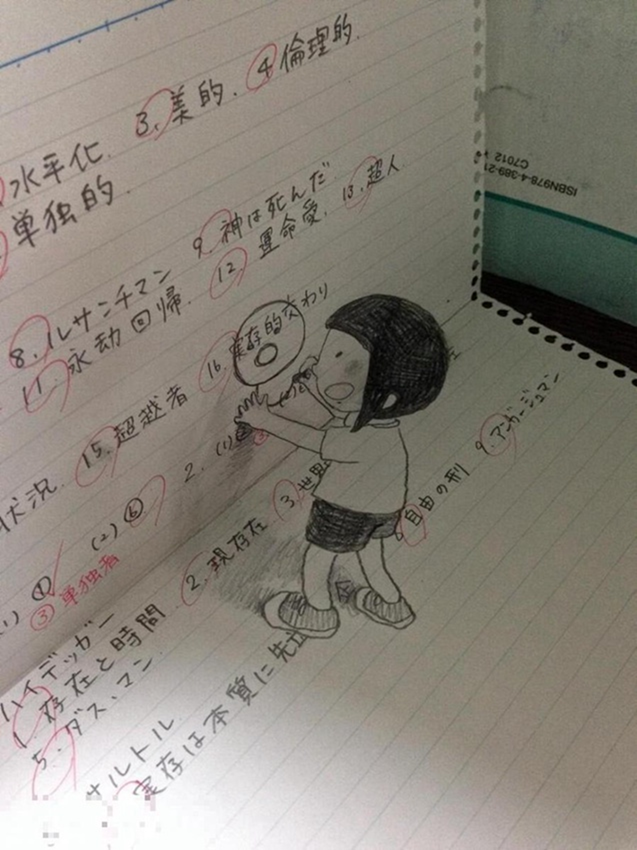 水平化. 3. 美的. 4 倫理的.
単独的.
8. ルサンチマン 9. 神は死んだ
11. 永劫回帰. 12 運命愛. 13. 超人
状況. 15. 超越者 16. 実存的交わり
(2) ⑥ 2. (1)
(1) ④
③ 単独者
ハイデッガー
1. 存在と時間 2. 現存在 3. 世界
5. ダス・マン
サルトル
実存は本質に先立 8 自由の刑 9. アンガージュマン
ISBN978-4-389-21
C7012